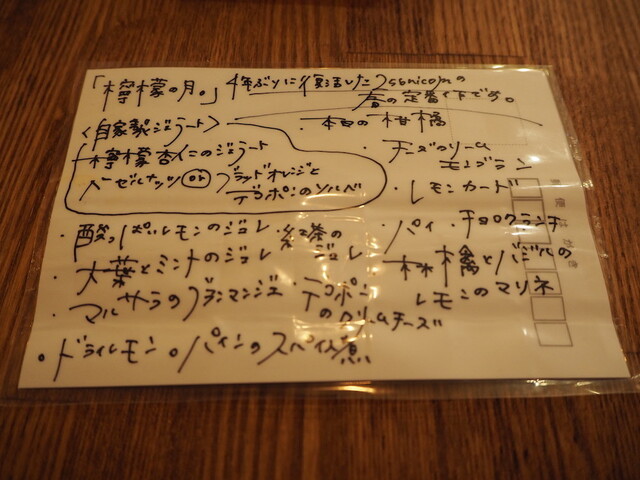 「檸檬の月。」4年ぶりに復活したuseunicornの
春の定番パフェです。
〈自家製ジェラート〉
檸檬杏仁のジェラート
ヘーゼルナッツ or ブラッドオレンジと
デコポンのソルベ
・本日の柑橘
・チーズクリーム
モンブラン
・レモンカード
・パイ・チョコクランチ
・酸っぱいレモンのジュレ・紅茶の
ジュレ
・大葉とミントのジュレ
・林檎とバジルの
レモンのマリネ
・マルサラのブランマンジェ・デコポン
のクリームチーズ
・ドライレモン・パインのスパイス煮